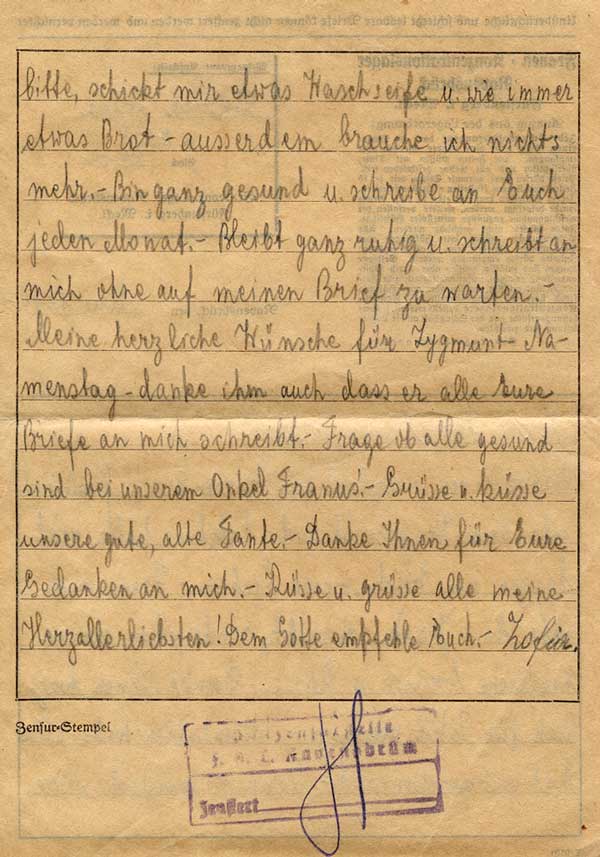 bitte, schickt mir etwas Waschseife u. wie immer
etwas Brot – ausserdem brauche ich nichts
mehr.– Bin ganz gesund u. schreibe an Euch
jeden Monat.– Bleibt ganz ruhig u. schreibt an
mich ohne auf meinen Brief zu warten.–
Meine herzliche Wünsche für Zygmunt – Na-
menstag – danke ihm auch dass er alle Eure
Briefe an mich schreibt.– Frage ob alle gesund
sind bei unserem Onkel Franuś.– Grüsse u. küsse
unsere gute, alte Tante.– Danke Ihnen für Eure
Gedanken an mich.– Küsse u. grüsse alle meine
Herzallerliebsten! Dem Gotte empfehle Euch.– Zofia.
Zensur-Stempel
Postzensurstelle
F. K. L. Ravensbrück
Zensiert